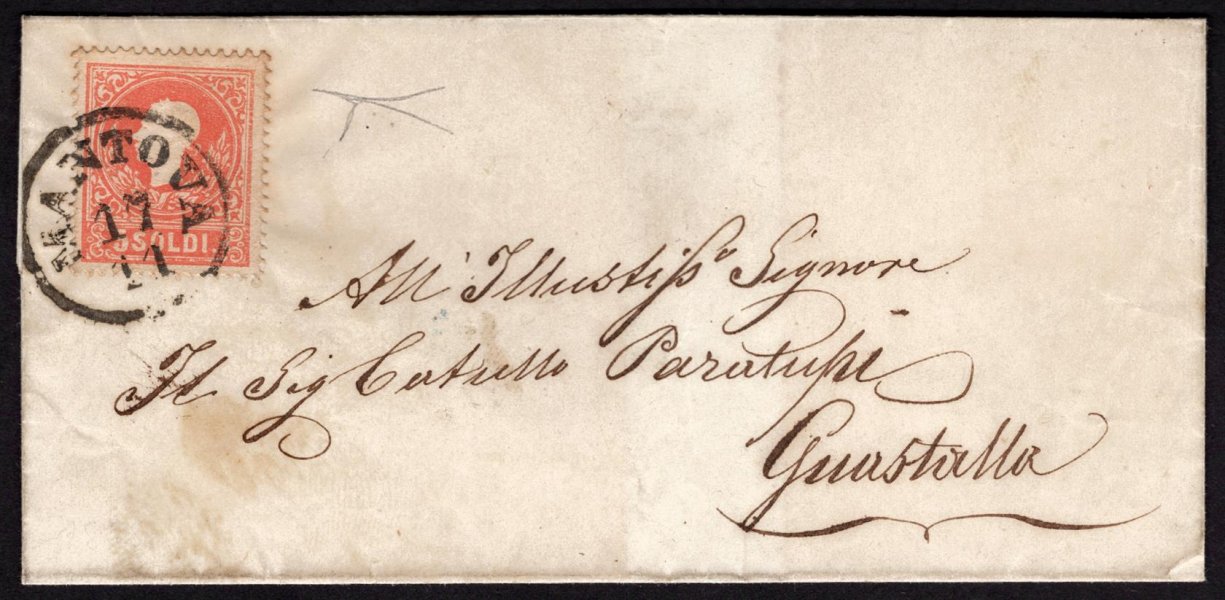 MANTOVA
17
11
5 SOLDI
All' Illustiss.o Signore
Il Sig Catullo
Guastalla